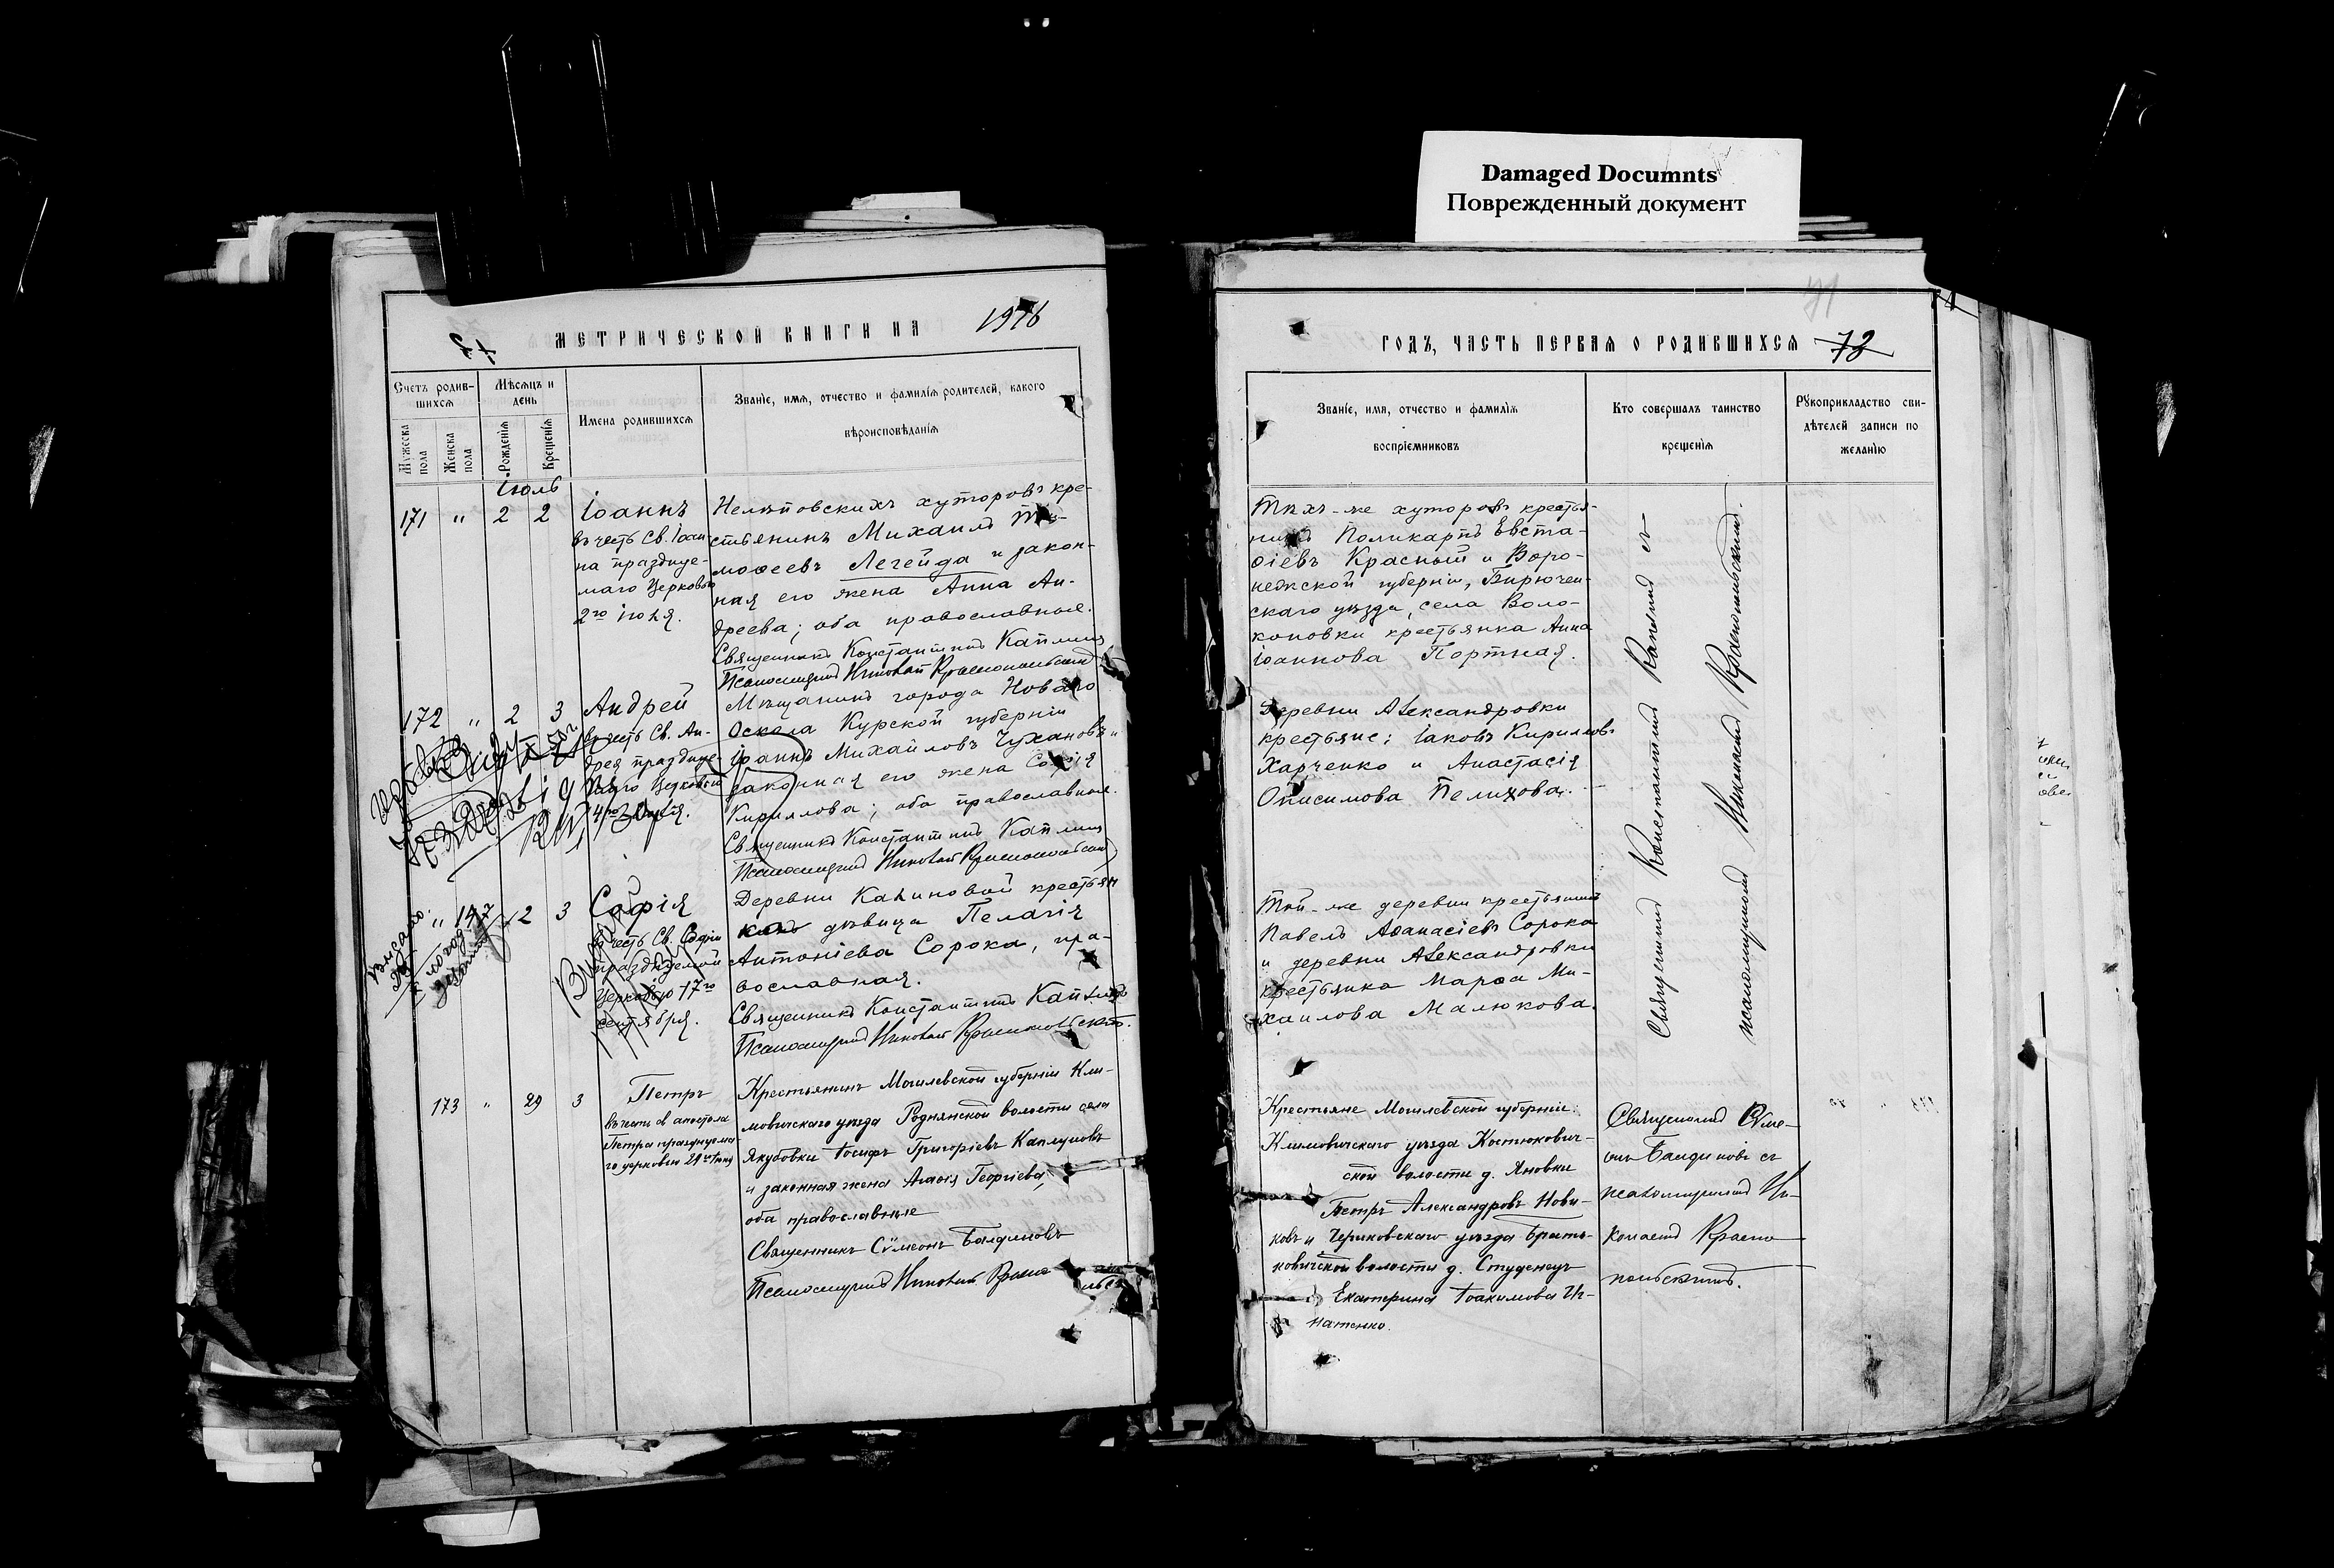 Damaged Documnts
Поврежденный документ
МЕТРИЧЕСКОЙ КНИГИ НА 1916
Счетъ родив-
шихся
Мѣсяцъ и
день
Имена родившихся
Званіе, имя, отчество и фамилія родителей, какого
вѣроисповѣданія
Мужеска
пола
Женска
пола
Рожденія
Крещенія
Іюль
171 " 2 2
Іоаннъ
въ честь Св. Іоан-
на праздруе-
маго Церковью
2го іюля.
хуторовъ кре-
стьянинъ Михаилъ Ти-
моѳеевъ Легейда и закон-
ная его жена Анна Ан-
дреева; оба православные.
Священникъ Константинъ Каплин
Псаломщикъ Николай Краснопольский
172 " 2 3
Андрей
въ честь Св. Ан-
дрея праздруе-
маго Церковью
4го
Мѣщанинъ города Новаго
Оскола Курской губерніи
Іоаннъ Михайловъ Чухановъ и
законная его жена Софія
Кириллова; оба православные.
Священникъ Константинъ Каплин
Псаломщикъ Николай Краснопольский
" 147 2 3
Софія
въ честь Св. Софіи
праздруемой
Церковью 17го
сентября.
Деревни Калиновой крестьян
дѣвица Пелагія
Антоніева Сорока, пра-
вославная.
Священникъ Константинъ Каплинъ
Псаломщикъ Николай Краснопольский.
173 " 29 3
Петръ
въ честь св апостола
Петра празднуема-
го церковью 29го Іюня
Крестьянинъ Могилевской губерніи Кли-
мовичскаго уѣзда Роднянской волости села
Якубовки Іосифъ Григоріевъ Каплуновъ
и законная жена Агаѳія Георгіева,
оба православные
Священникъ Сѵмеонъ Балдиновъ
Псаломщикъ Николай
ГОДЪ, ЧАСТЬ ПЕРВАЯ О РОДИВШИХСЯ 73
71
Званіе, имя, отчество и фамилія
воспріемниковъ
Кто совершалъ таинство
крещенія
Рукоприкладство сви-
дѣтелей записи по
желанію
Тѣхъ-же хуторовъ крестья-
нинъ Поликарпъ Евста-
ѳіевъ Красный и Воро-
нежской губерніи, Бирючен-
скаго уѣзда, села Воло-
коновки крестьянка Анна
Іоаннова Портная.
Деревни Александровки
крестьяне: Іаковъ Кирилловъ
Харченко и Анастасія
Онисимова Пелихова.
Той-же деревни крестьянинъ
Павелъ Аѳанасіевъ Сорока
и деревни Александровки
крестьянка Марѳа Ми-
хаилова Малюкова.
Священникъ Константинъ Каплинъ съ
псаломщикомъ Николаемъ Краснопольскимъ.
Крестьяне Могилевской губерніи:
Климовичскаго уѣзда Костюкович-
ской волости д. Яновки
Петръ Александровъ Нови-
ковъ и Чериковскаго уѣзда Брать-
ковичской волости д. Студенецъ
Екатерина Іоакимова Иг-
натенко.
Священникъ Сѵме-
онъ Балдиновъ съ
псаломщикомъ Ни-
колаемъ Красно-
польскимъ.